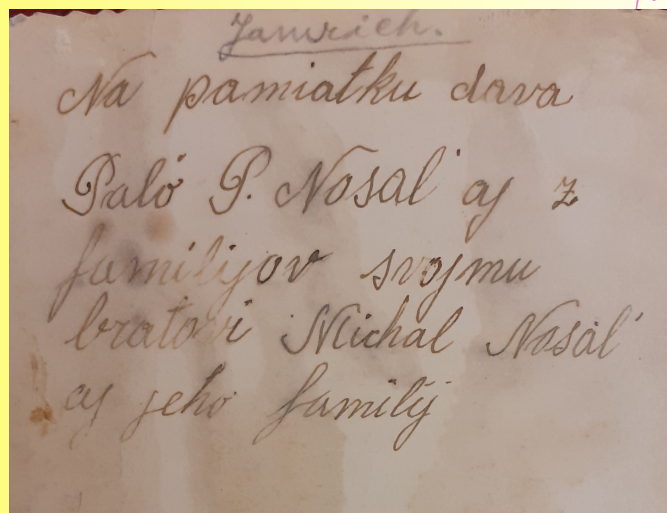 Jamrich.
Na pamiatku dava
Palo P. Nosáľ aj z
familijov svojmu
bratovi Michal Nosáľ
aj jeho familij